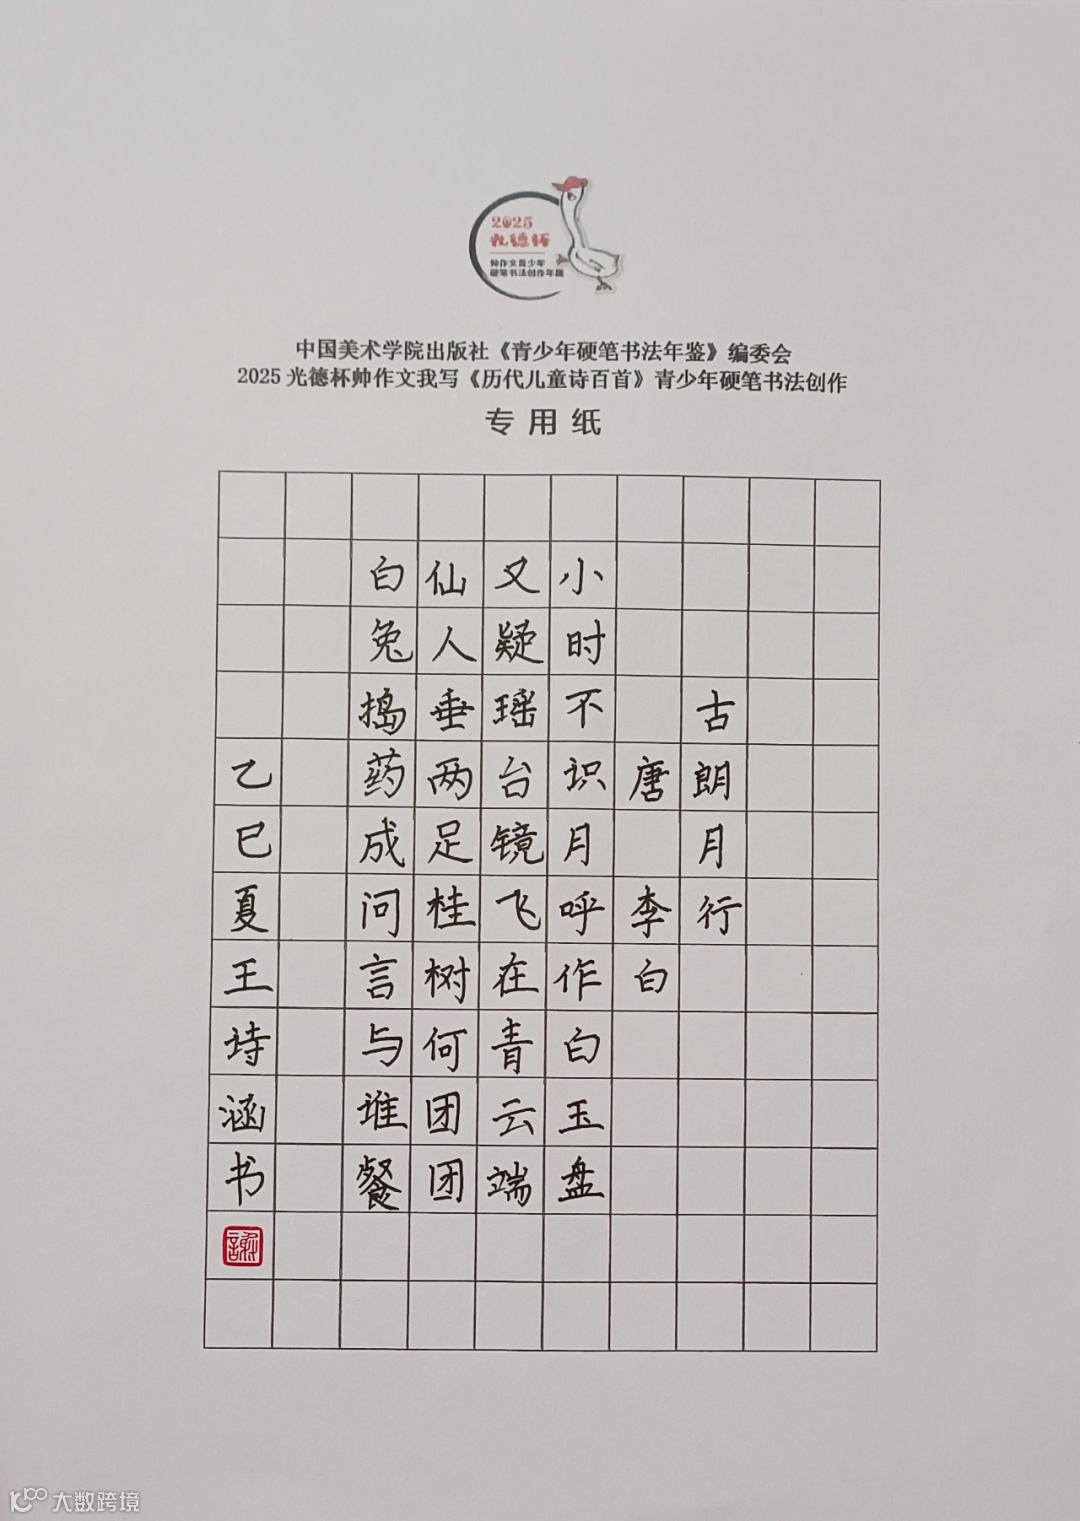 2025
光德杯
帅作文青少年
硬笔书法创作年展
中国美术学院出版社《青少年硬笔书法年鉴》编委会
2025光德杯帅作文我写《历代儿童诗百首》青少年硬笔书法创作
专用纸
古朗月行
唐 李白
小时不识月呼作白玉盘
又疑瑶台镜飞在青云端
仙人垂两足桂树何团团
白兔捣药成问言与谁餐
乙巳夏王诗涵书
大数跨境